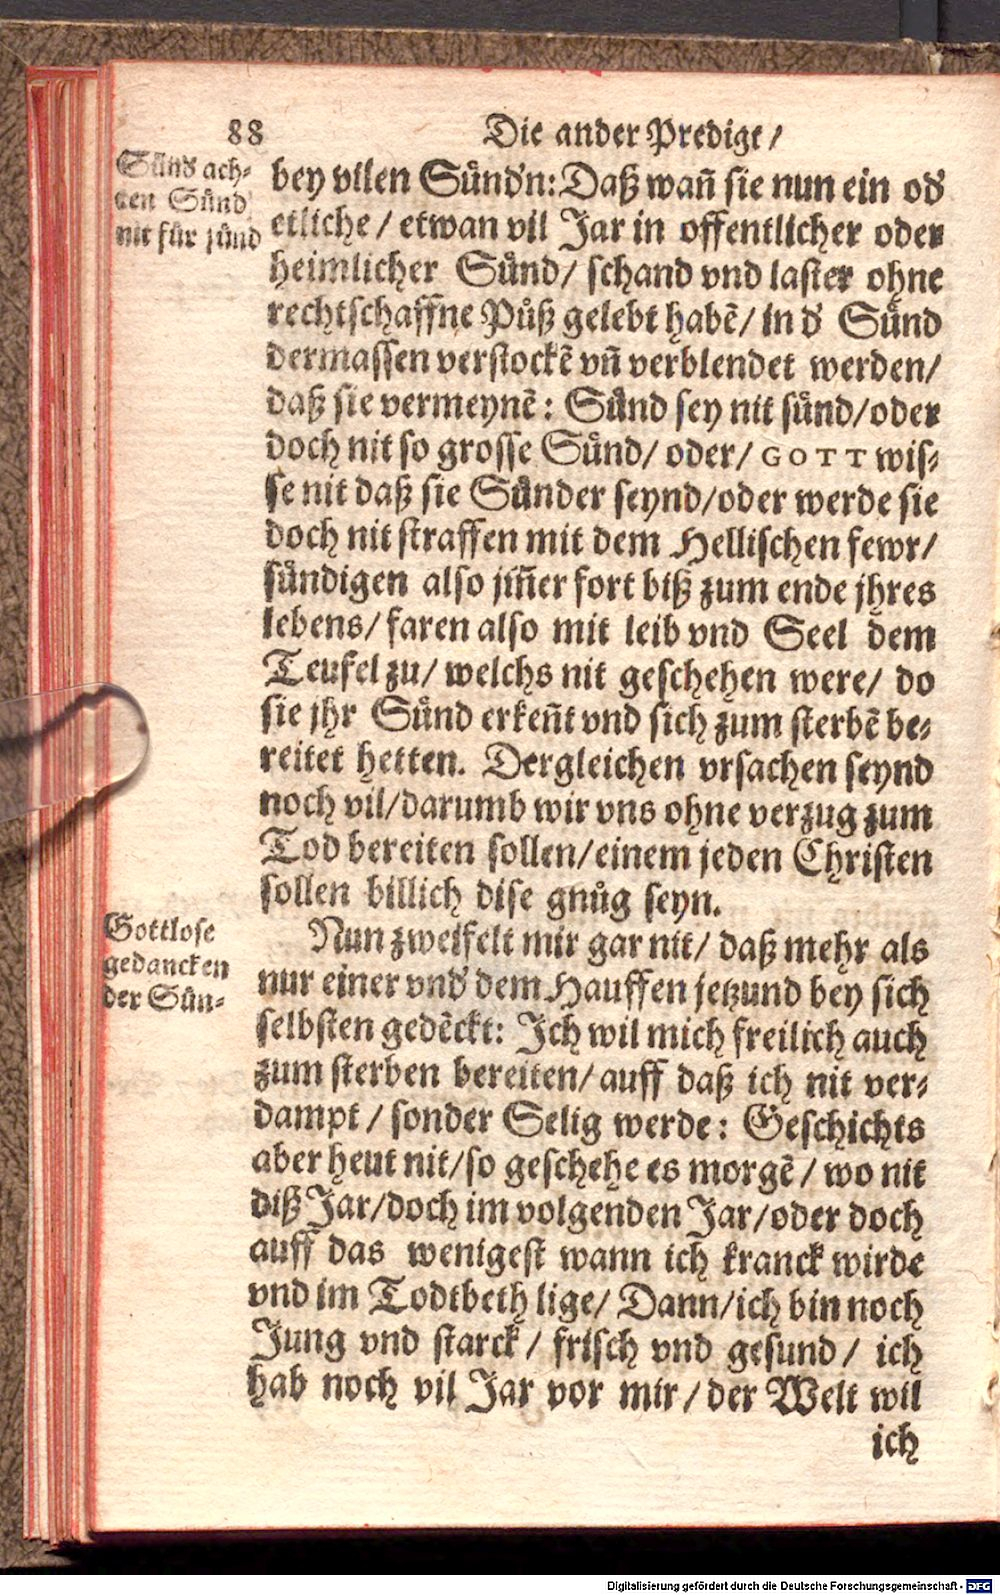 88 Die ander Predigt /
Sünd ach-
ten Sünd
nit für sünd
bey vilen Sünd'n: Daß wañ sie nun ein od'
etliche / etwan vil Jar in offentlicher oder
heimlicher Sünd / schand vnd laster ohne
rechtschaffne Půß gelebt habẽ / in d' Sünd
dermassen verstockẽ vñ verblendet werden /
daß sie vermeynẽ : Sünd sey nit sünd / oder
doch nit so grosse Sünd / oder / GOTT wis-
se nit daß sie Sünder seynd / oder werde sie
doch nit straffen mit dem Hellischen fewr /
sündigen also jm̃er fort biß zum ende jhres
lebens / faren also mit leib vnd Seel dem
Teufel zu / welchs nit geschehen were / do
sie jhr Sünd erkeñt vnd sich zum sterbẽ be-
reitet hetten. Dergleichen vrsachen seynd
noch vil / darumb wir vns ohne verzug zum
Tod bereiten sollen / einem jeden Christen
sollen billich dise gnůg seyn.
Gottlose
gedancken
der Sün-
Nun zweifelt mir gar nit / daß mehr als
nur einer vnd' dem Hauffen jetzund bey sich
selbsten gedẽckt: Ich wil mich freilich auch
zum sterben bereiten / auff daß ich nit ver-
dampt / sonder Selig werde : Geschichts
aber heut nit / so geschehe es morgẽ / wo nit
diß Jar / doch im volgenden Jar / oder doch
auff das wenigest wann ich kranck wirde
vnd im Todtbeth lige / Dann / ich bin noch
Jung vnd starck / frisch vnd gesund / ich
hab noch vil Jar vor mir / der Welt wil
ich
Digitalisierung gefördert durch die Deutsche Forschungsgemeinschaft - DFG